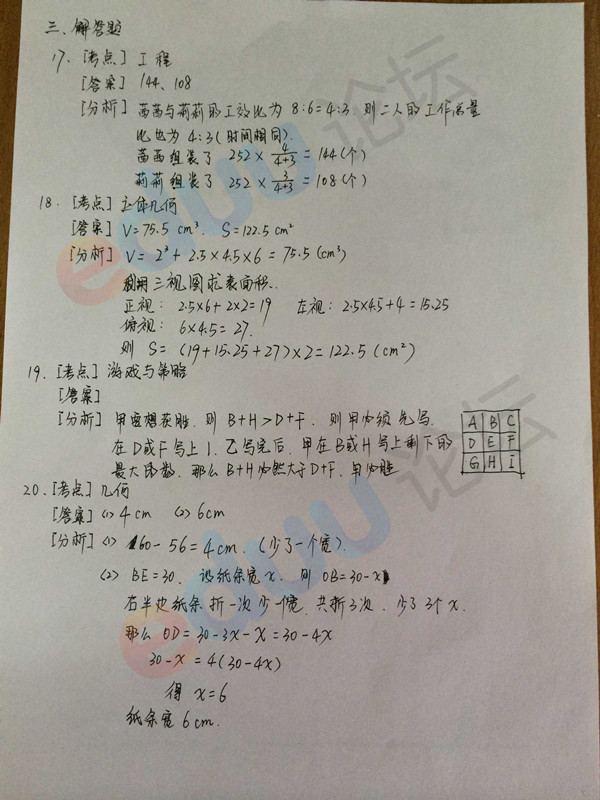 三、解答题
17.[考点] 工程
[答案] 144、108
[分析] 茜茜与莉莉的工效比为 8:6=4:3. 则二人的工作总量
比也为 4:3(时间相同).
茜茜组装了 252×4/(4+3)=144(个)
莉莉组装了 252×3/(4+3)=108(个)
18.[考点] 立体几何
[答案] V=75.5 cm³. S=122.5 cm²
[分析] V= 2³+2.5×4.5×6=75.5(cm³)
利用三视图求表面积.
正视: 2.5×6+2×2=19 左视: 2.5×4.5+4=15.25
俯视: 6×4.5=27.
则 S=(19+15.25+27)×2=122.5(cm²)
19.[考点] 游戏与策略
[答案]
[分析] 甲要想获胜. 则 B+H>D+F. 则甲必须先写.
在D或F写上1. 乙写完后. 甲在B或H写上剩下的
最大的数. 那么B+H必然大于D+F. 甲必胜
A B C
D E F
G H I
20.[考点] 几何
[答案] (1) 4cm (2) 6cm
[分析] (1) 60-56=4cm. (少了一个宽).
(2) BE=30. 设纸条宽x. 则 OB=30-x
右半边纸条折一次少一个宽. 共折3次. 少了3个x.
那么 OD=30-3x-x=30-4x
30-x=4(30-4x)
得 x=6
纸条宽6cm.
eduu论坛
eduu论坛
eduu论坛